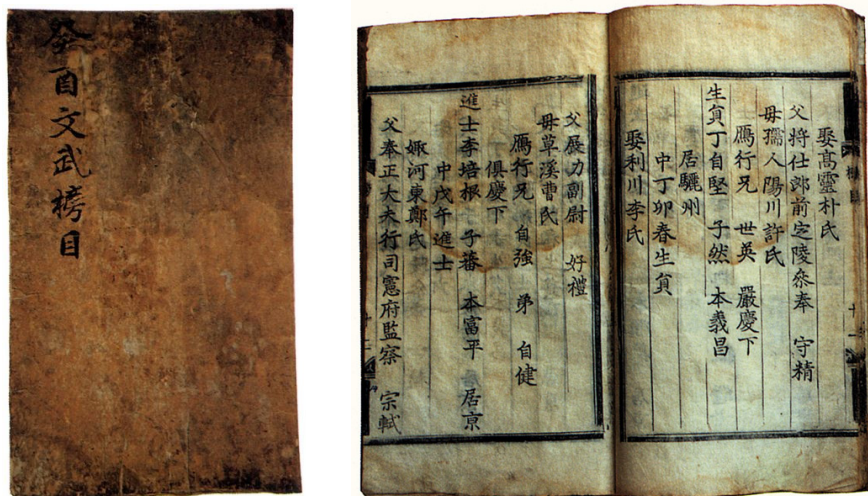 癸酉文武榜目
娶高靈朴氏
父將仕郎前定陵叅奉 守精
母孺人陽川許氏
鴈行兄 世英 嚴慶下
生負丁自堅 子然 本義昌
居驪州
中丁卯春生負
娶利川李氏
父展力副尉 好禮
母草溪曹氏
鴈行兄 自強 弟 自健
俱慶下
進士李培根 子蕃 本富平 居京
中戊午進士
娵河東鄭氏
父奉正大夫行司憲府監察 宗軾